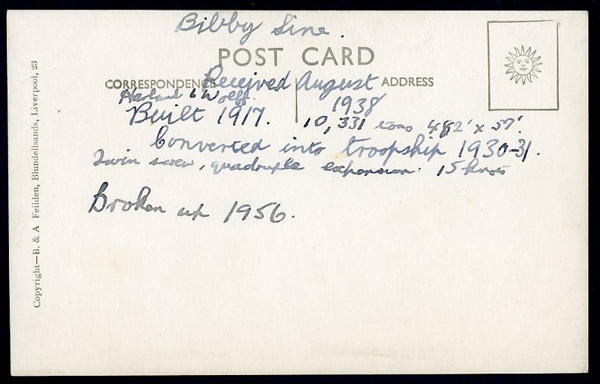 Bibby Line.
POST CARD
CORRESPONDENCE
ADDRESS
Received August 1938
Harland & Wolff.
Built 1917. 10,331 tons 482' x 57'.
Converted into troopship 1930-31.
Twin screw, quadruple expansion. 15 knots
Broken up 1956.
Copyright—B. & A Feilden, Blundellsands, Liverpool, 23